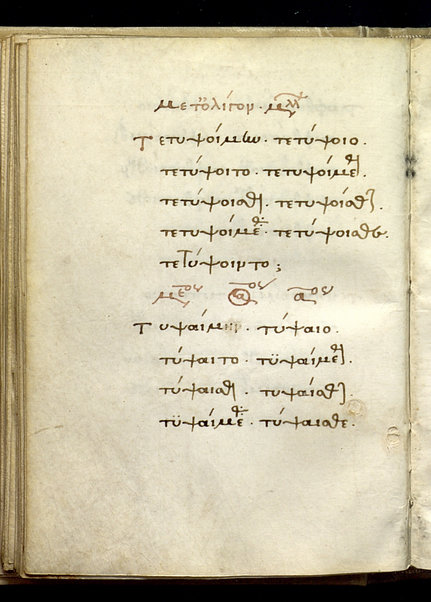 μετ' ὀλίγον μ
Τετυψοίμην · τετύψοιο ·
τετύψοιτο · τετυψοίμεθον ·
τετύψοισθον · τετυψοίσθην ·
τετυψοίμεθα · τετύψοισθε ·
τετύψοιντο ;
μέσου α ἀορίστου
Τυψαίμην · τύψαιο ·
τύψαιτο · τυψαίμεθον ·
τύψαισθον · τυψαίσθην ·
τυψαίμεθα · τύψαισθε ·